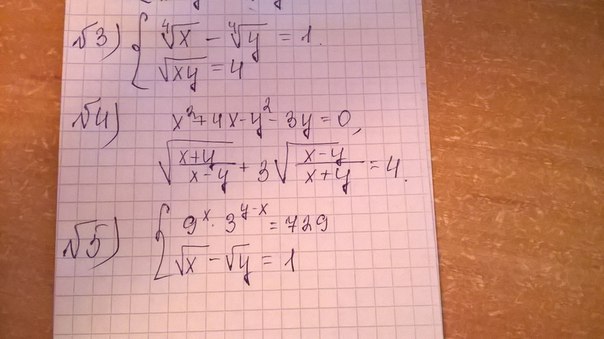 √3) { ∜x - ∜y = 1.
√xy = 4
√4) x² + 4x - y² - 3y = 0,
√(x+y)/(x-y) + 3√(x-y)/(x+y) = 4.
√5) { 9ˣ · 3ʸ⁻ˣ = 729
√x - √y = 1